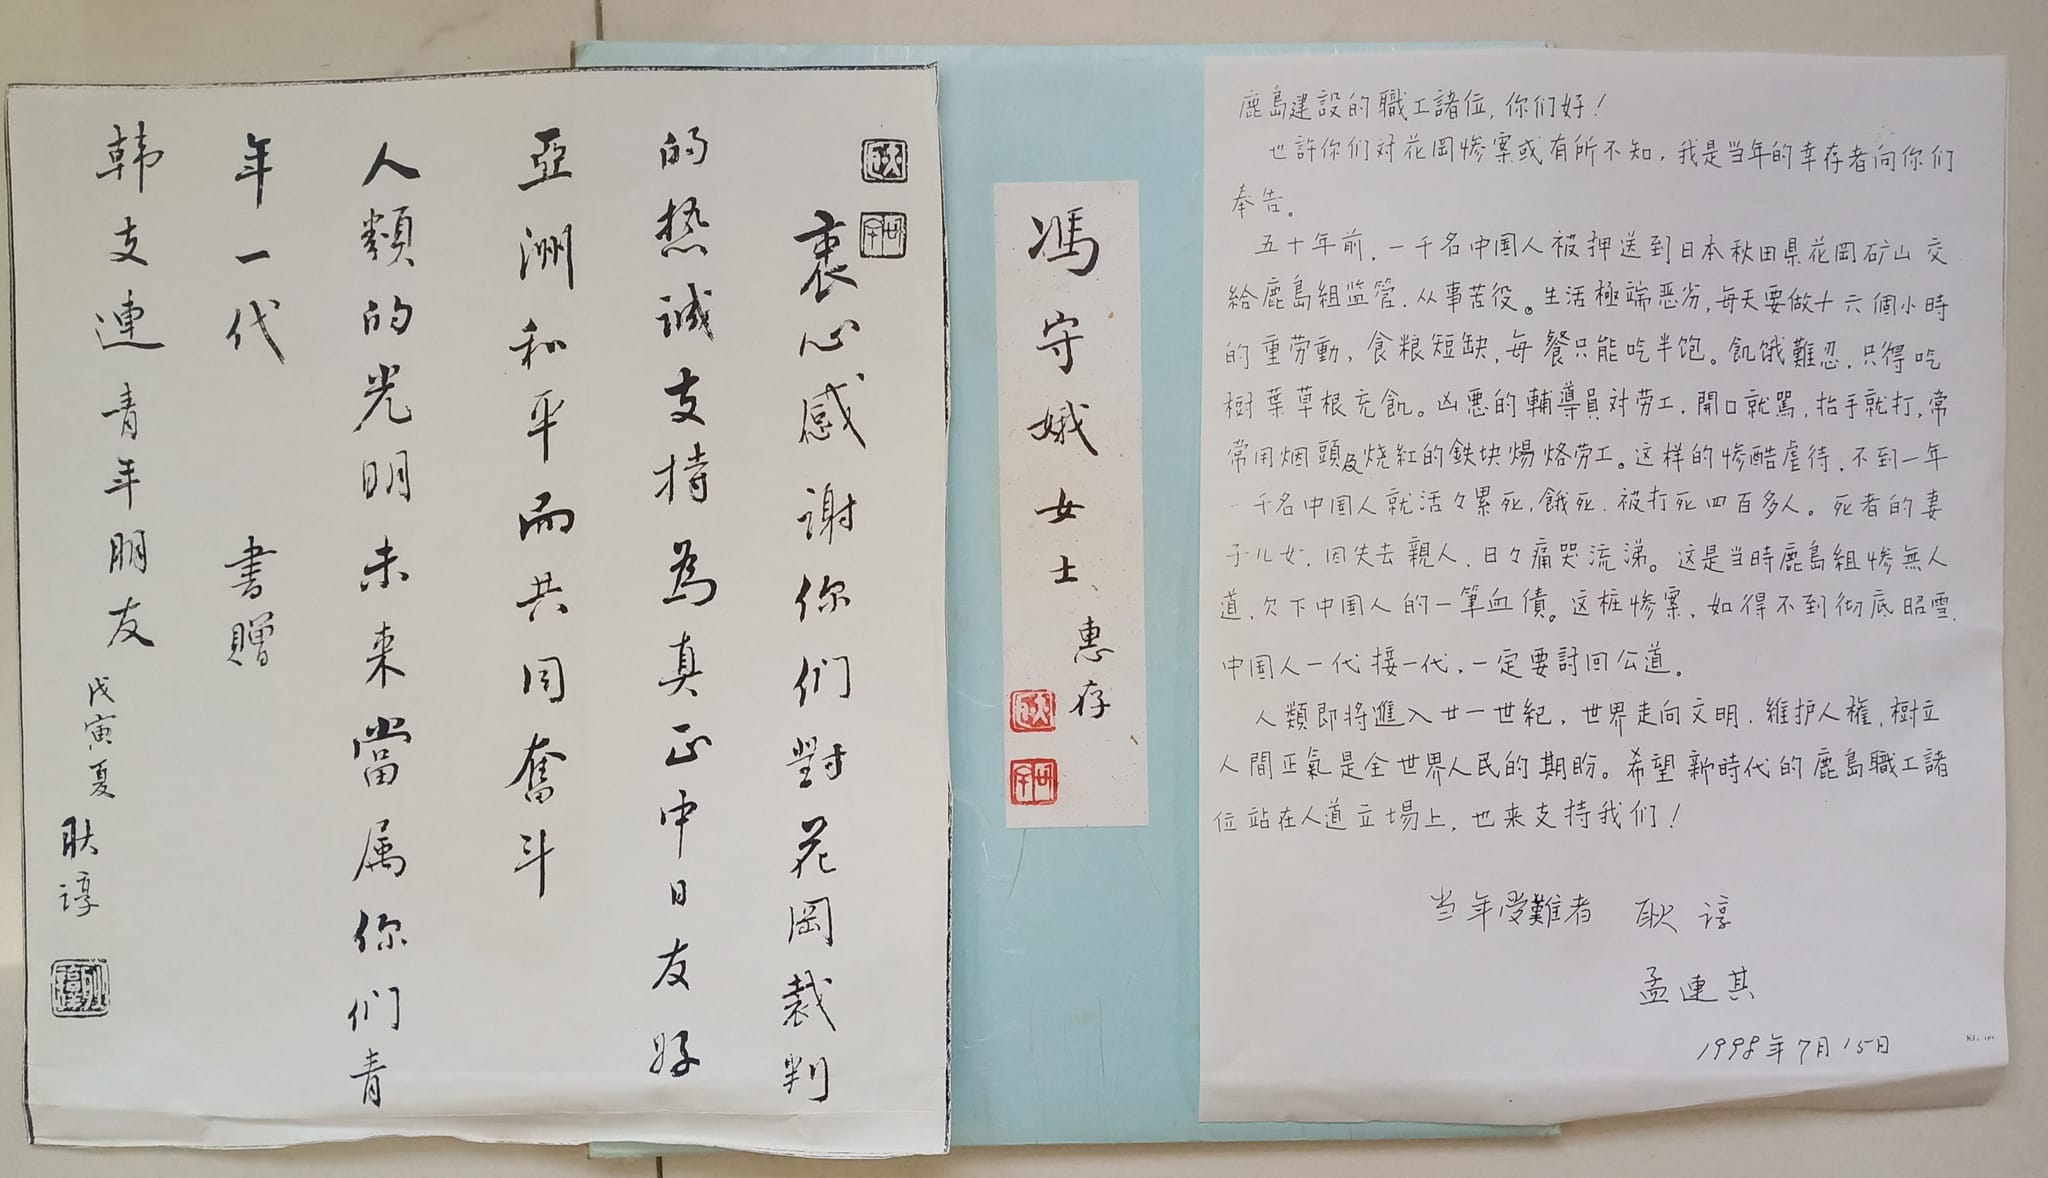 衷心感謝你们對花岡裁判
的热誠支持為真正中日友好
亞洲和平而共同奮斗
人類的光明未來當属你们青
年一代 書贈
韩支連青年朋友
戊寅夏 耿諄
馮守娥女士 惠存
鹿島建設的職工諸位,你们好!
也許你们对花岡惨案或有所不知,我是当年的幸存者向你们
奉告。
五十年前,一千名中国人被押送到日本秋田県花岡矿山交
給鹿島組监管,从事苦役。生活極端恶劣,每天要做十六個小時
的重劳動,食粮短缺,每餐只能吃半饱。飢饿難忍,只得吃
樹葉草根充飢。凶悪的輔導員対劳工,開口就罵,抬手就打,常
常用烟頭及烧紅的鉄块煬烙劳工。这样的惨酷虐待,不到一年
一千名中国人就活々累死,餓死,被打死四百多人。死者的妻
子儿女,因失去親人,日々痛哭流涕。这是当時鹿島組惨無人
道,欠下中国人的一筆血債。这桩惨案,如得不到彻底昭雪,
中国人一代接一代,一定要討回公道。
人類即将進入廿一世紀,世界走向文明,維护人權,樹立
人間正氣是全世界人民的期盼。希望新時代的鹿島職工諸
位站在人道立場上,也来支持我们!
当年受難者 耿諄
孟連其
1998年7月15日